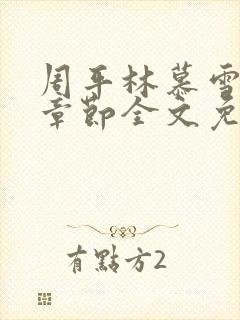 周平林慕雪
章節全文免
有點方2